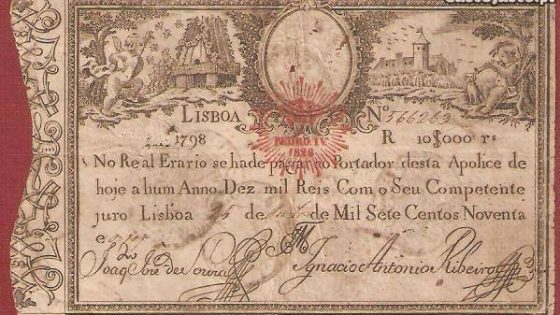 LISBOA Nº 566263
1798 R 10$000 rˢ
PEDRO IV
1826
No Real Erario se hade pagar ao Portador desta Apolice de
hoje a hum Anno Dez mil Reis Com o Seu Competente
juro Lisboa de de Mil Sete Centos Noventa
e
Joaq Joze de Souza Ignacio Antonio Ribeiro